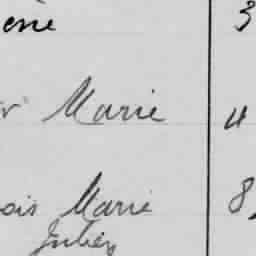 ène 3
r Marie 4
ois Marie 8
Julien